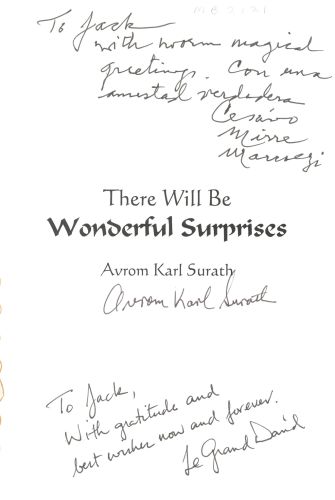 MB2121
To Jack
with warm magical
greetings. Con una
amistad verdadera
Cesáreo
There Will Be
Wonderful Surprises
Avrom Karl Surath
Avrom Karl Surath
To Jack,
With gratitude and
best wishes now and forever.
Le Grand David